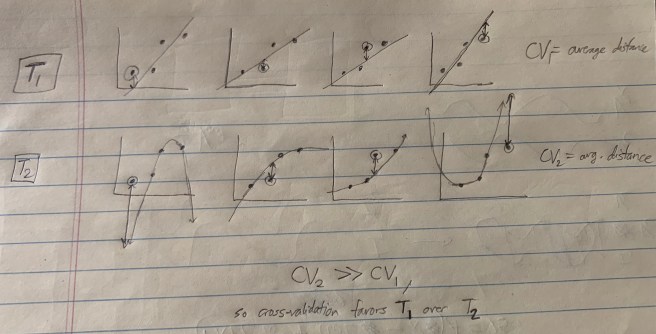 T₁
CV₁ = average distance
T₂
CV₂ = avg. distance
CV₂ >> CV₁,
so cross-validation favors T₁ over T₂